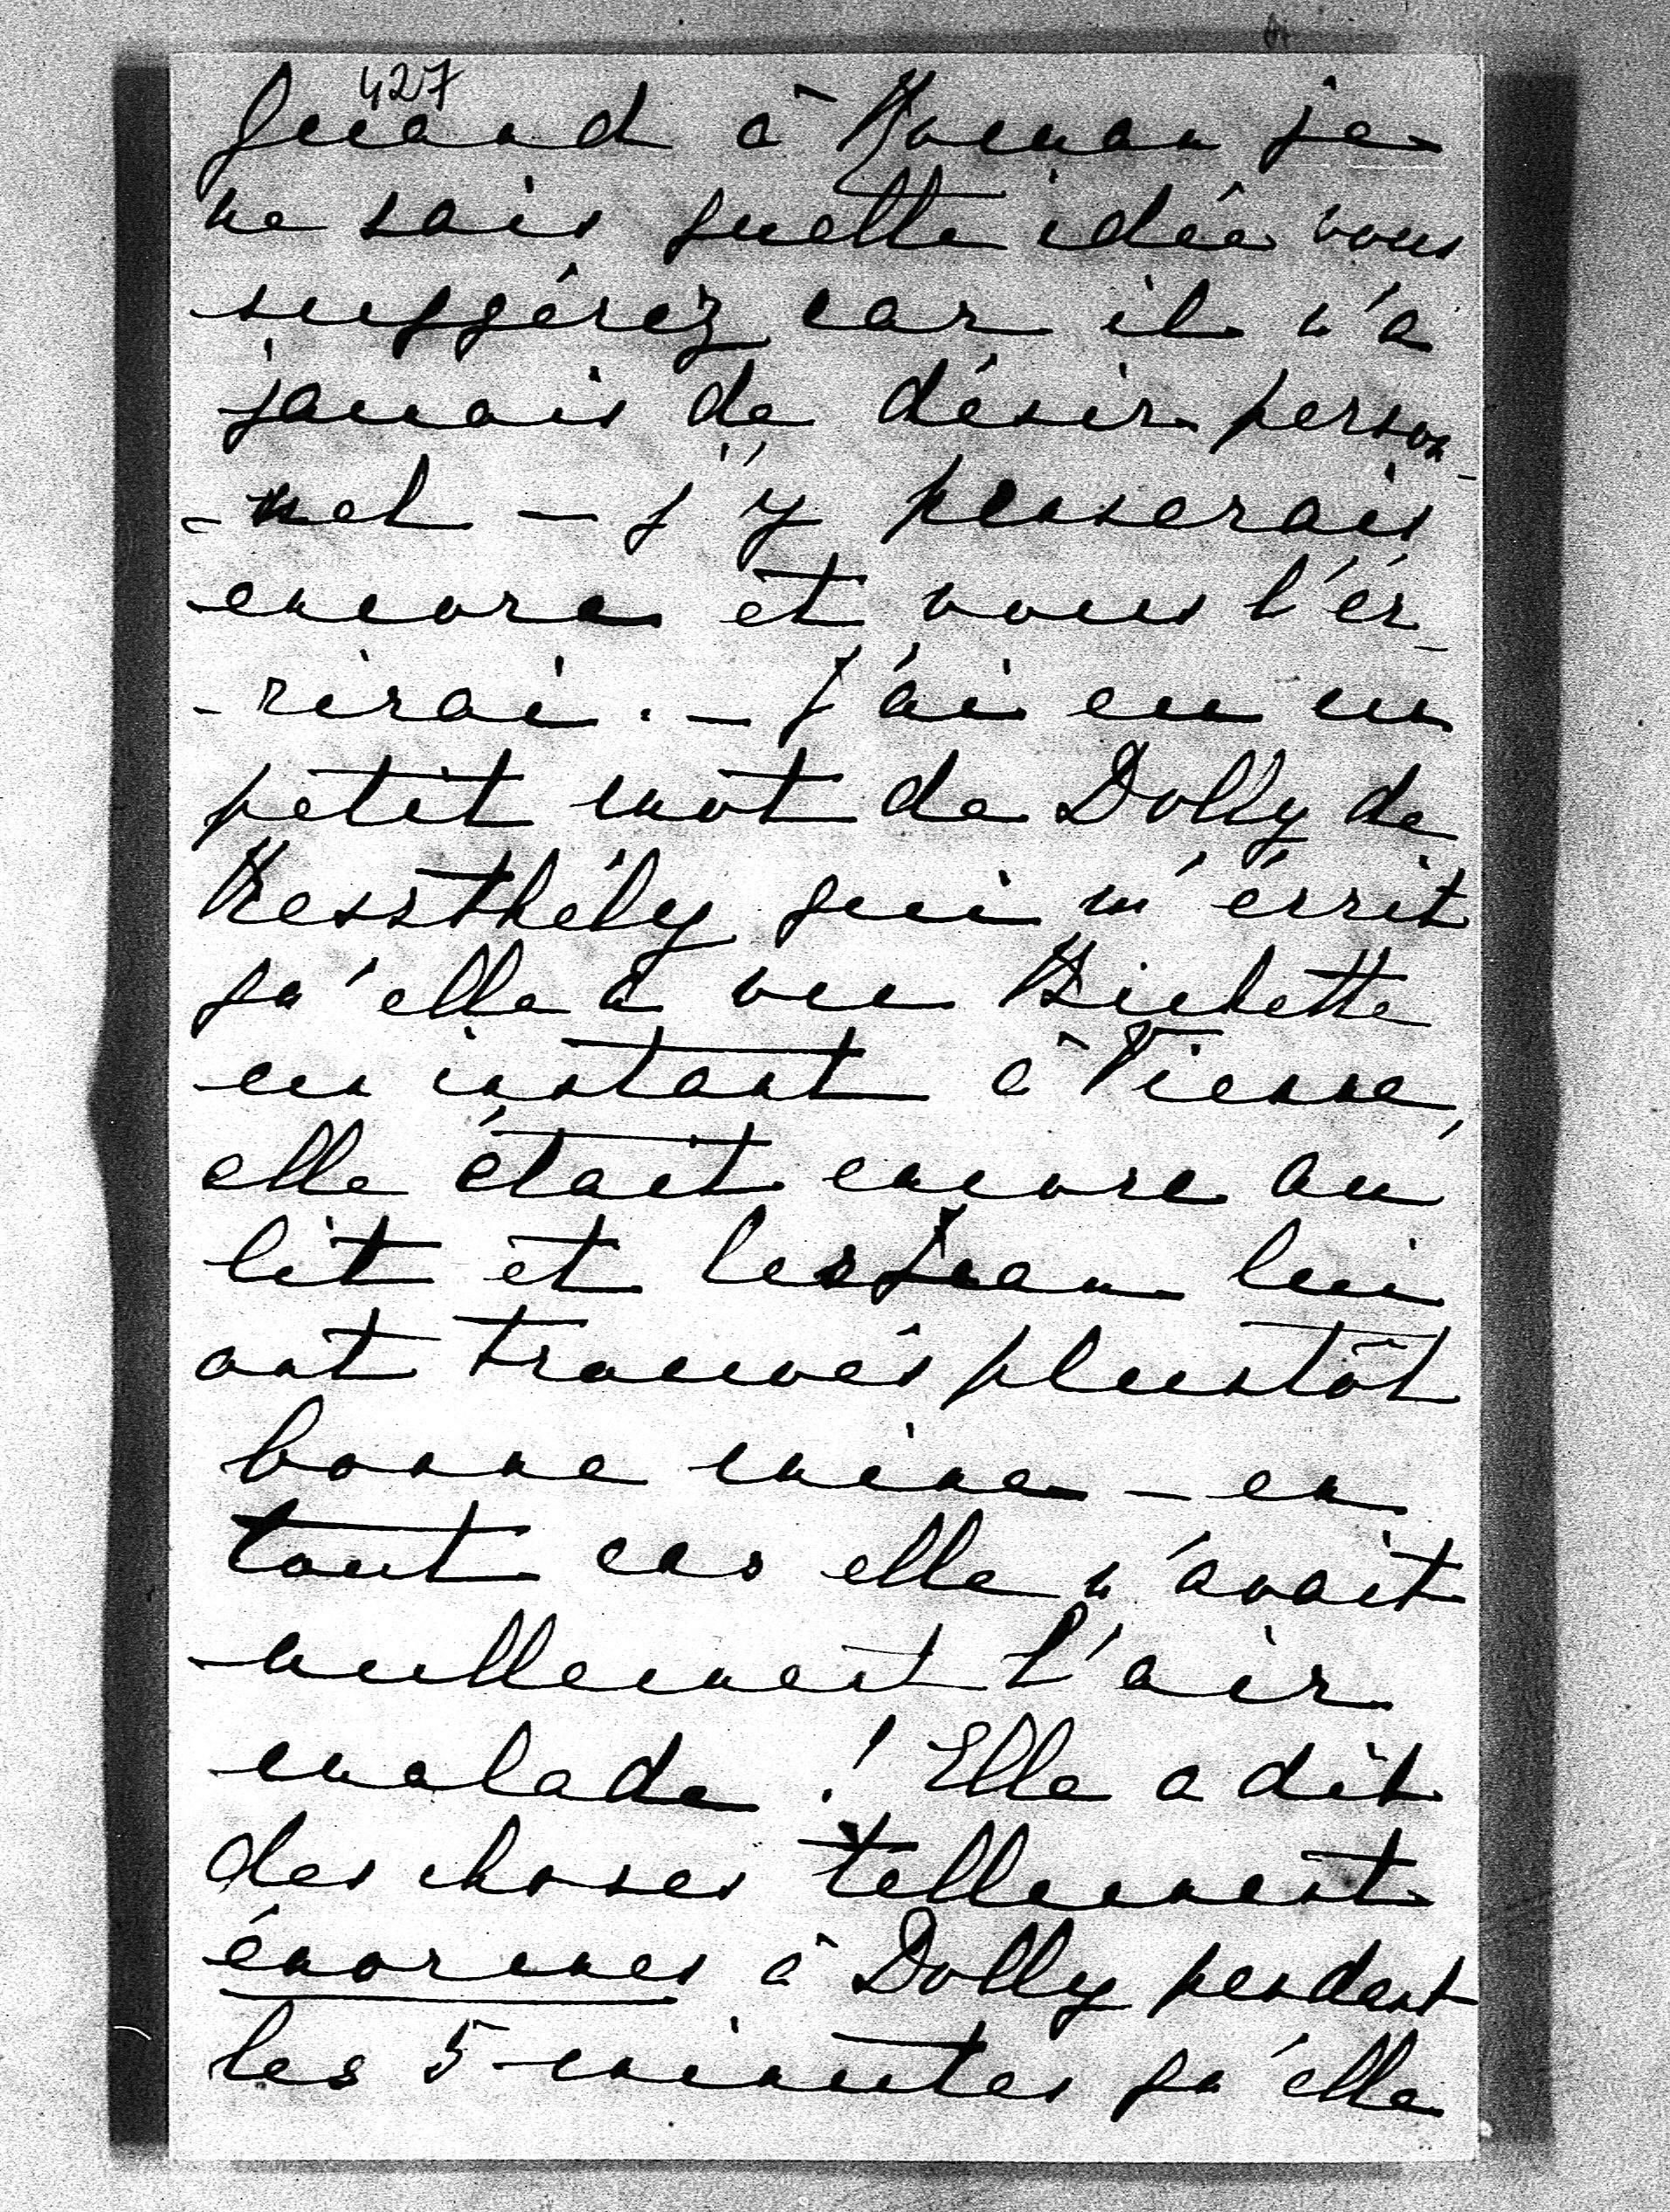 427
Quand à Roman je
ne sais quelle idée vous
suggérez car il n'a
jamais de désir person-
-nel — j'y penserais
encore et vous l'éc-
-rirai. — J'ai eu un
petit mot de Dolly de
Kessthély qui m'écrit
qu'elle a vu Bichette
un instant à Vienne,
elle était encore au
lit et les Jean lui
ont trouvés plustôt
bonne mine — en
tout cas elle n'avait
nullement l'air
malade! Elle a dit
des choses tellement
énormes à Dolly pendant
les 5 minutes qu'elle